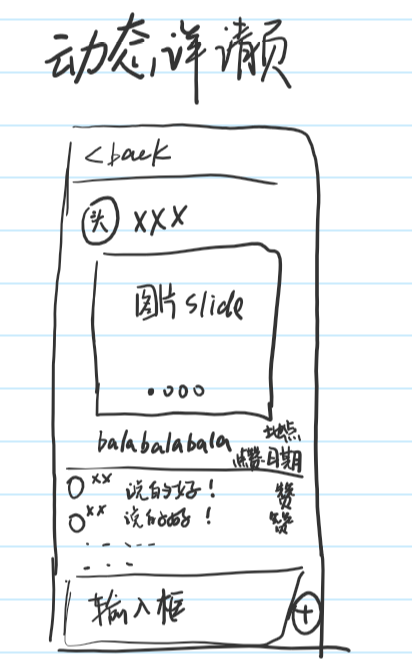 动态详请页
<back
头 XXX
图片slide
balabalabala
地点
点赞·日期
xx 说的好！ 赞
xx 说的好！ 赞
输入框 +